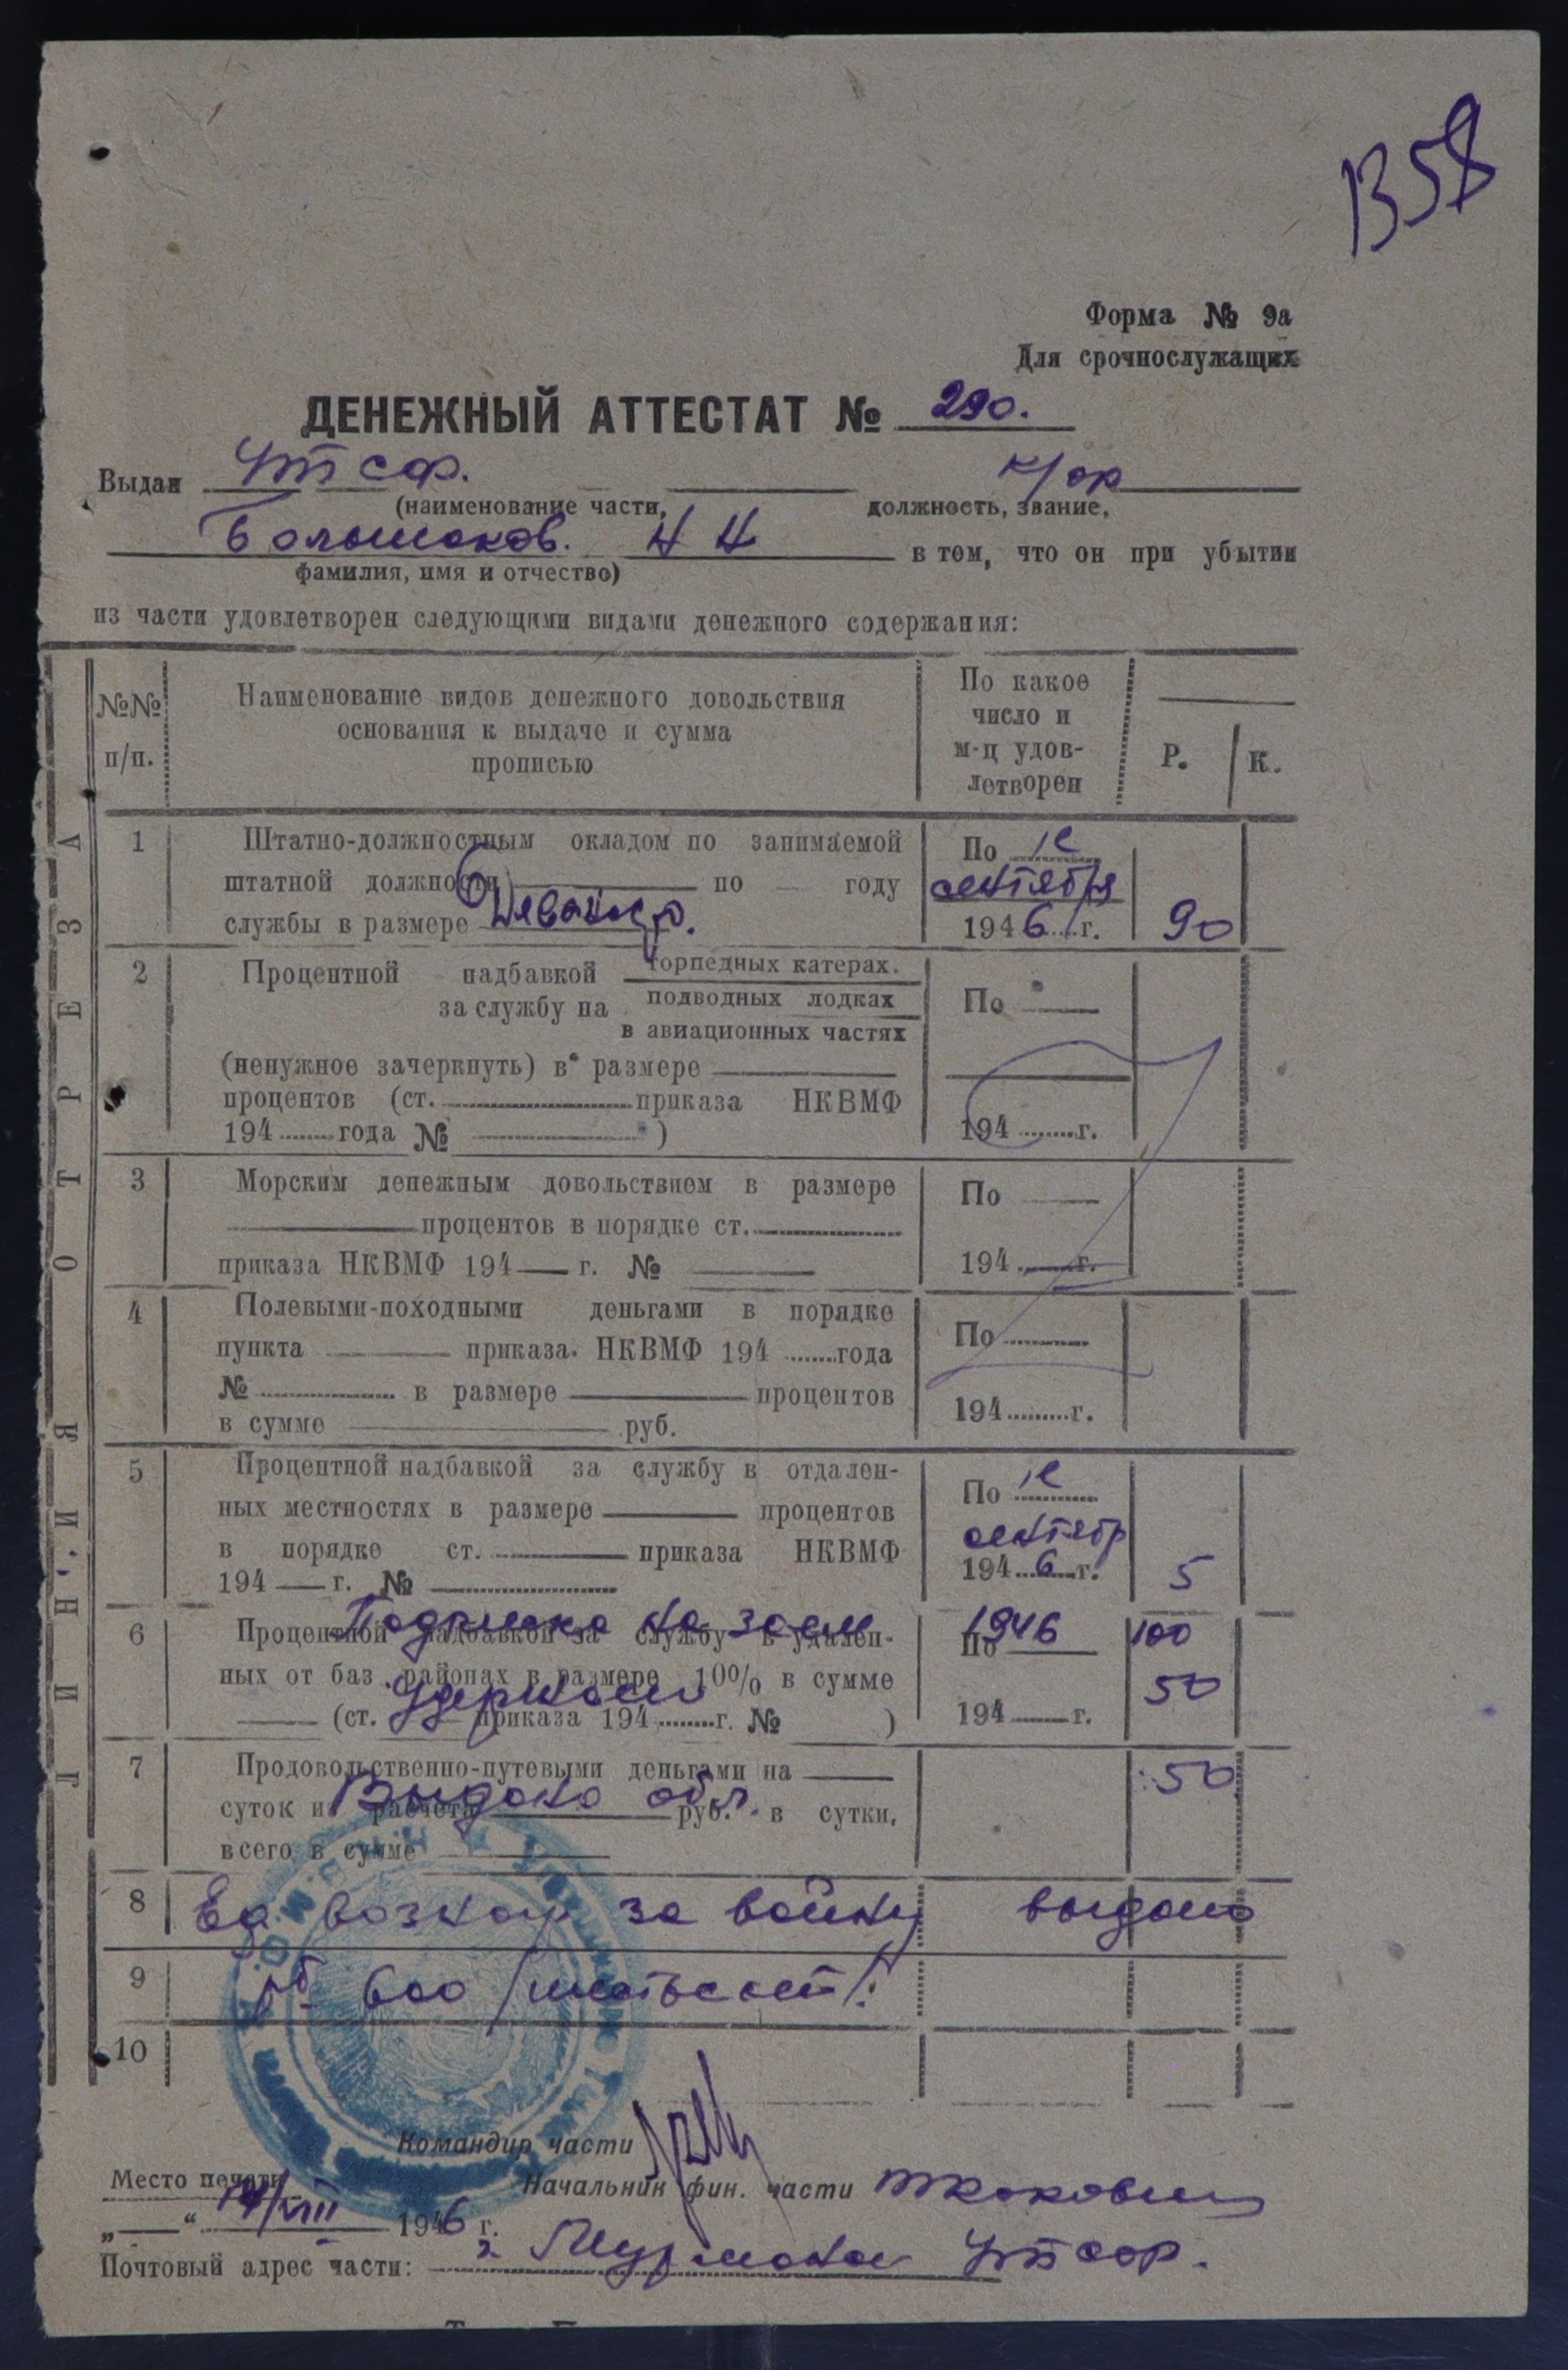 1358
Форма № 9а
Для срочнослужащих
ДЕНЕЖНЫЙ АТТЕСТАТ № 290.
Выдан УТ СФ.
(наименование части, должность, звание,
Большаков. Н Н в том, что он при убытии
фамилия, имя и отчество)
из части удовлетворен следующими видами денежного содержания:
ЛИНИЯ ОТРЕЗА
№№ п/п.
Наименование видов денежного довольствия
основания к выдаче и сумма
прописью
По какое
число и
м-ц удов-
летворен
Р. К.
1 Штатно-должностным окладом по занимаемой
штатной должности по году
службы в размере Девяносто.
По 1е
сентября
1946 г. 90
2 Процентной надбавкой торпедных катерах.
за службу на подводных лодках
в авиационных частях
(ненужное зачеркнуть) в размере
процентов (ст. приказа НКВМФ
194 года № )
По
194 г.
3 Морским денежным довольствием в размере
процентов в порядке ст.
приказа НКВМФ 194 г. №
По
194 г.
4 Полевыми-походными деньгами в порядке
пункта приказа НКВМФ 194 года
№ в размере процентов
в сумме руб.
По
194 г.
5 Процентной надбавкой за службу в отдален-
ных местностях в размере процентов
в порядке ст. приказа НКВМФ
194 г. №
По 1е
сентябр
1946 г. 5
Подписка на заем 1946 100
6 Процентной надбавкой за службу в удален-
ных от баз районах в размере 10% в сумме
Удержано 50
(ст. приказа 194 г. № )
По
194 г.
7 Продовольственно-путевыми деньгами на
Выдано обл. 50
суток из расчета руб. в сутки,
всего в сумме
8 Ед вознаг за войну выдано
9 600 /шестьсот/.
10
Командир части
Место печати
Начальник фин. части
14/VIII 1946 г.
Почтовый адрес части: г. Мурманск